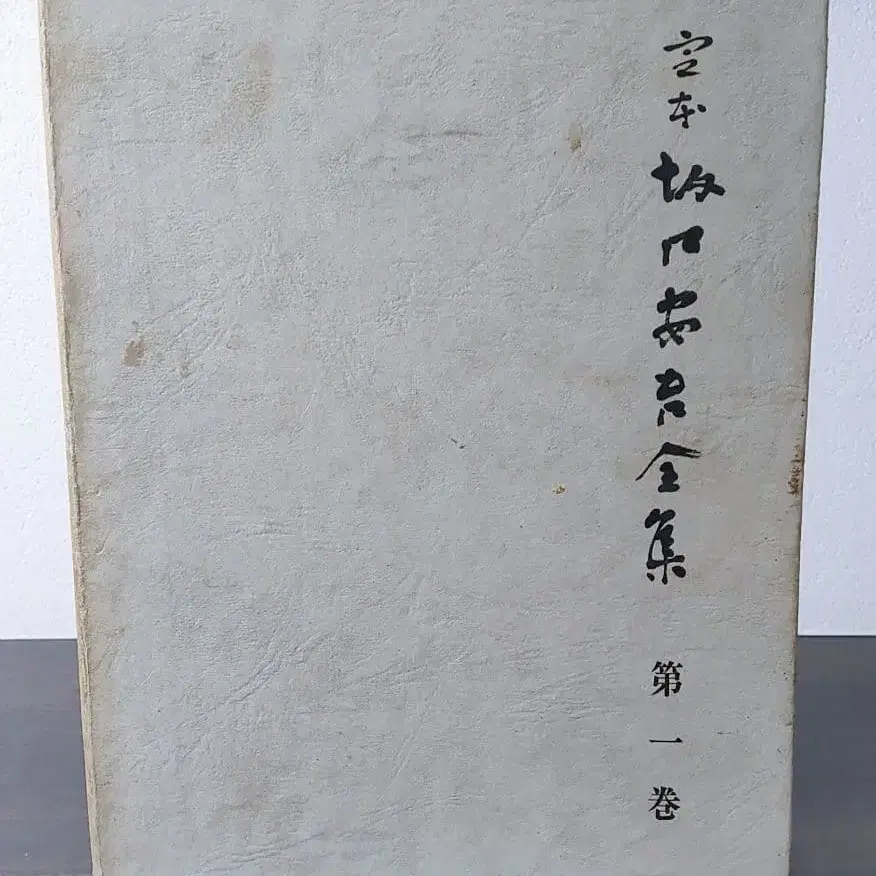 定本坂口安吾全集
第一巻